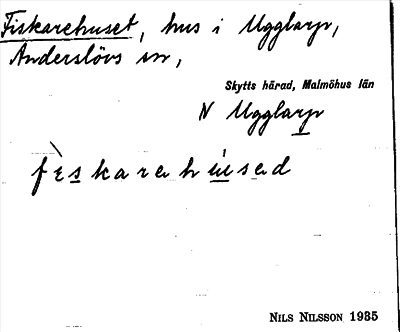 Fiskarehuset, hus i Ugglarp,
Anderslövs sn,
Skytts härad, Malmöhus län
N Ugglarp
fìskarehúsed
NILS NILSSON 1935